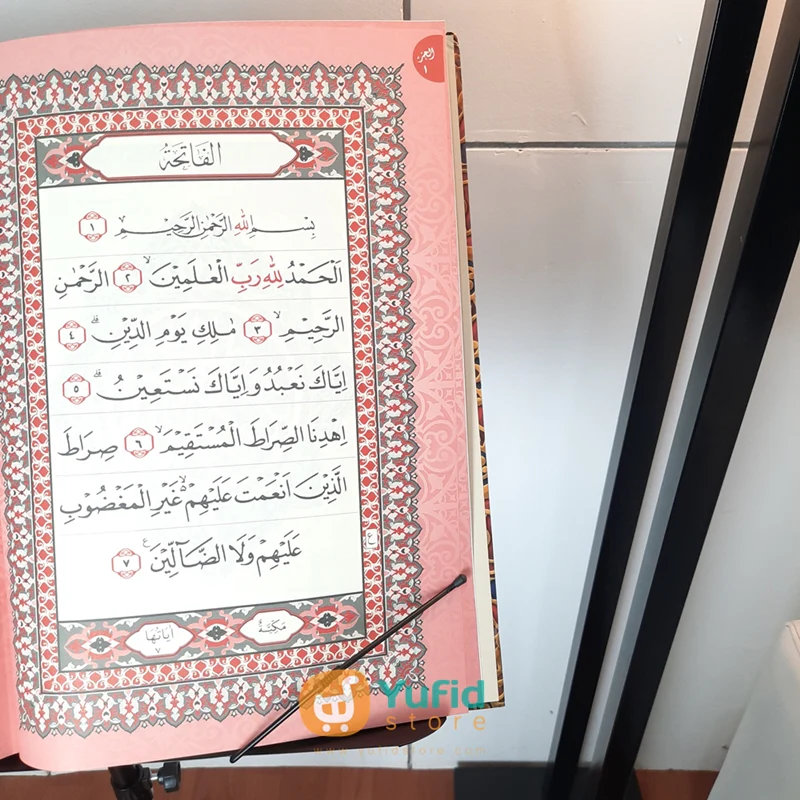 الجزء
١
الفَاتِحَةُ
بِسْمِ اللهِ الرَّحْمٰنِ الرَّحِيْمِ ۙ ١
اَلْحَمْدُ لِلّٰهِ رَبِّ الْعٰلَمِيْنَ ۙ ٢ الرَّحْمٰنِ
الرَّحِيْمِ ۙ ٣ مٰلِكِ يَوْمِ الدِّيْنِ ۗ ٤
اِيَّاكَ نَعْبُدُ وَاِيَّاكَ نَسْتَعِيْنُ ۗ ٥
اِهْدِنَا الصِّرَاطَ الْمُسْتَقِيْمَ ۙ ٦ صِرَاطَ
الَّذِيْنَ اَنْعَمْتَ عَلَيْهِمْ ەۙ غَيْرِ الْمَغْضُوْبِ
عَلَيْهِمْ وَلَا الضَّآلِّيْنَ ࣖ ٧
ع
مَكِّيَّةٌ
اٰيَاتُهَا
٧
Yufid
store
www.yufidstore.com